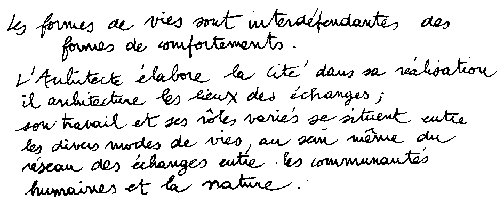 Les formes de vies sont interdépendantes des
formes de comportements.
L'Architecte élabore la Cité dans sa réalisation
il architecture les lieux des échanges ;
son travail et ses rôles variés se situent entre
les divers modes de vies, au sein même du
réseau des échanges entre les communautés
humaines et la nature.